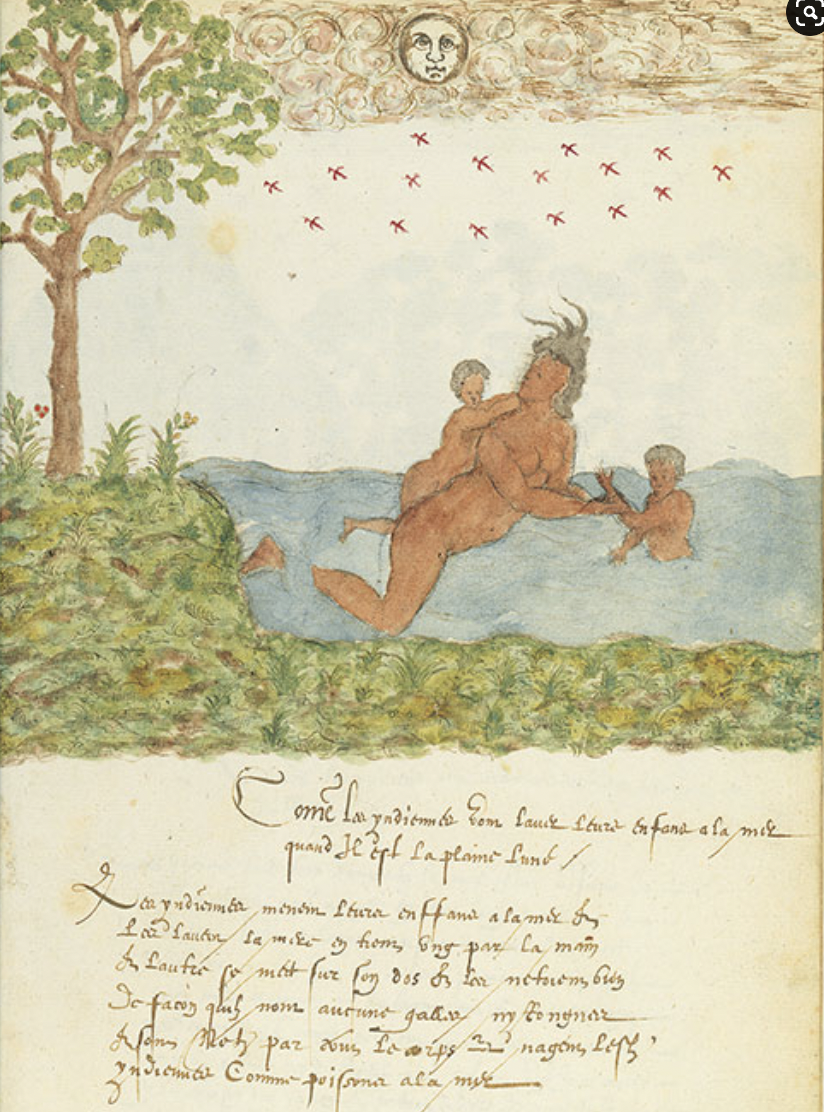 Comē les yndiennes vont laver leurs enfans a la mer
quand Il est la plaine lune
Les yndiennes menent leurs enffans a la mer &
les laver la mere en tient ung par la main
& lautre se met sur son dos & les netoient bien
De facon quilz nont aucune galles ny Rongnes
& sont Netz par tout le corps & nagent lesd
yndiennes Comme poissons a la mer